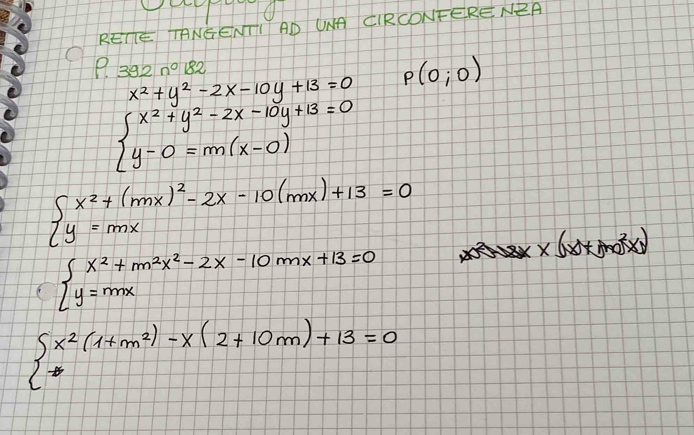 RETTE TANGENTI AD UNA CIRCONFERENZA
P. 392 n° 182
x² + y² - 2x - 10y + 13 = 0 P(0;0)
{ x² + y² - 2x - 10y + 13 = 0
{ y - 0 = m(x - 0)
{ x² + (mx)² - 2x - 10(mx) + 13 = 0
{ y = mx
{ x² + m²x² - 2x - 10mx + 13 = 0
{ y = mx
{ x² (1 + m²) - x (2 + 10m) + 13 = 0
{